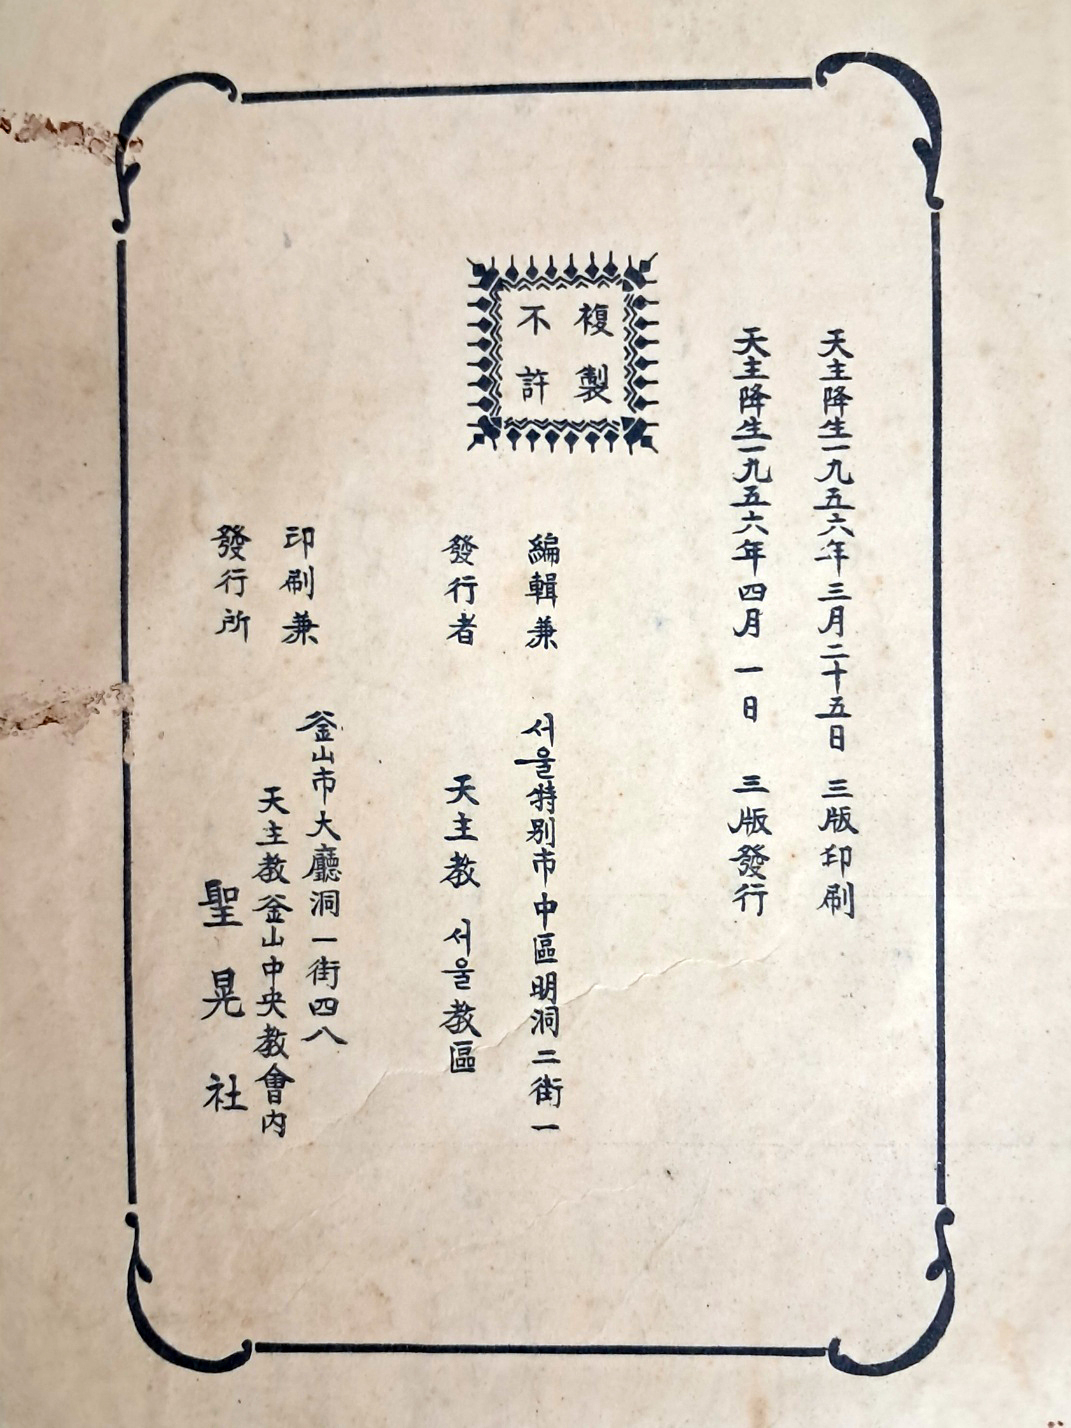 天主降生一九五六年三月二十五日 三版印刷
天主降生一九五六年四月一日 三版發行
複製
不許
編輯兼
發行者
서울特別市中區明洞二街一
天主教 서울教區
印刷兼
發行所
釜山市大廳洞一街四八
天主教釜山中央教會內
聖晃社